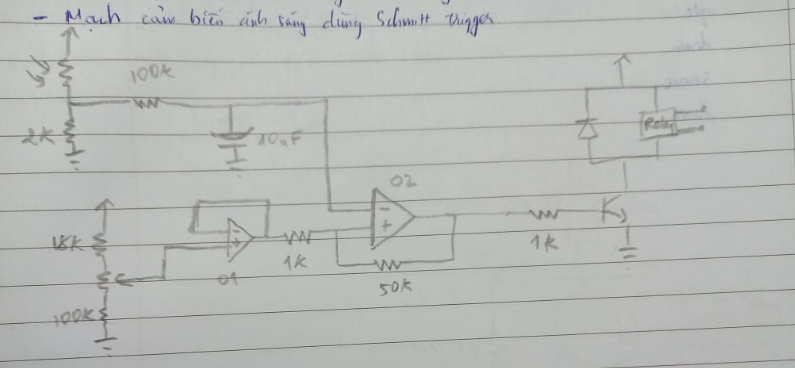 - Mạch cảm biến ánh sáng dùng Schmitt trigger
100K
2K
10uF
Relay
02
18K
1K
1K
01
50K
100K